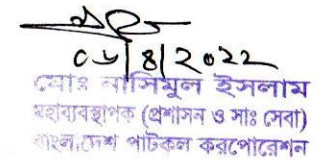 ০৬/৪/২০২২
মোঃ নাসিমুল ইসলাম
মহাব্যবস্থাপক (প্রশাসন ও সাঃ সেবা)
বাংলাদেশ পাটকল করপোরেশন